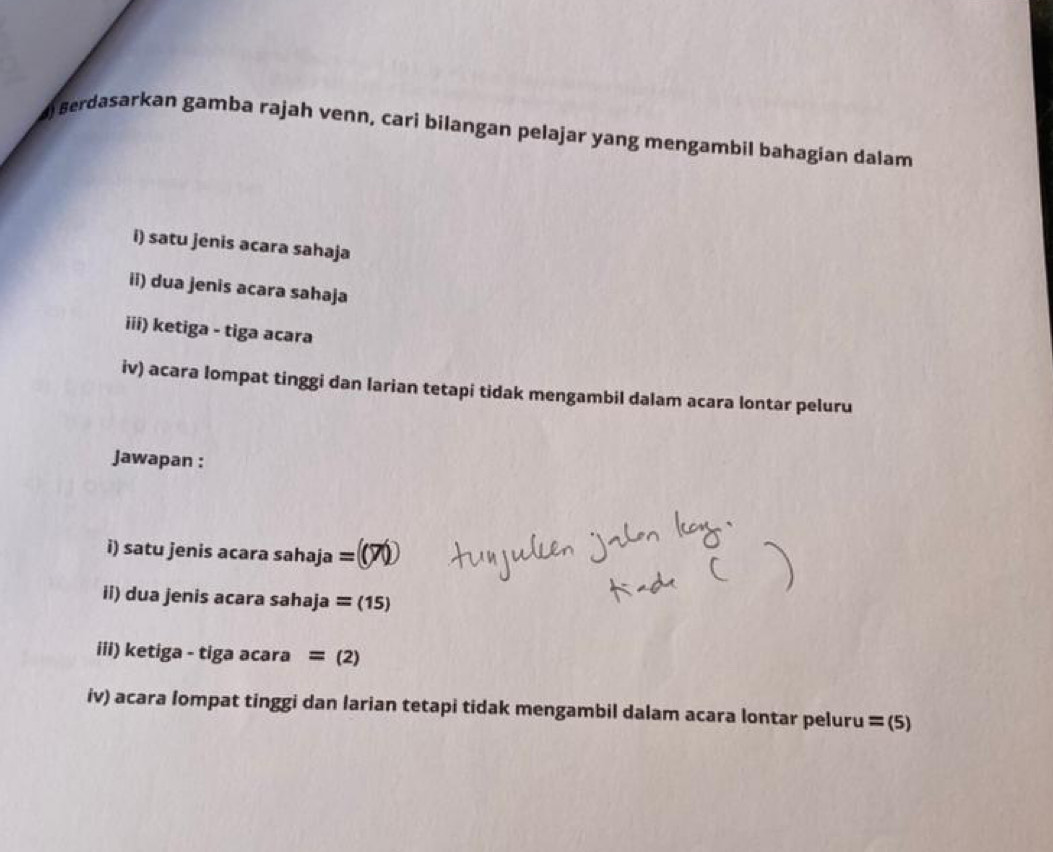 Berdasarkan gamba rajah venn, cari bilangan pelajar yang mengambil bahagian dalam
i) satu jenis acara sahaja
ii) dua jenis acara sahaja
iii) ketiga - tiga acara
iv) acara lompat tinggi dan larian tetapi tidak mengambil dalam acara lontar peluru
Jawapan :
i) satu jenis acara sahaja = (7) tunjukken jalan
tiade ( )
ii) dua jenis acara sahaja = (15)
iii) ketiga - tiga acara = (2)
iv) acara lompat tinggi dan larian tetapi tidak mengambil dalam acara lontar peluru = (5)